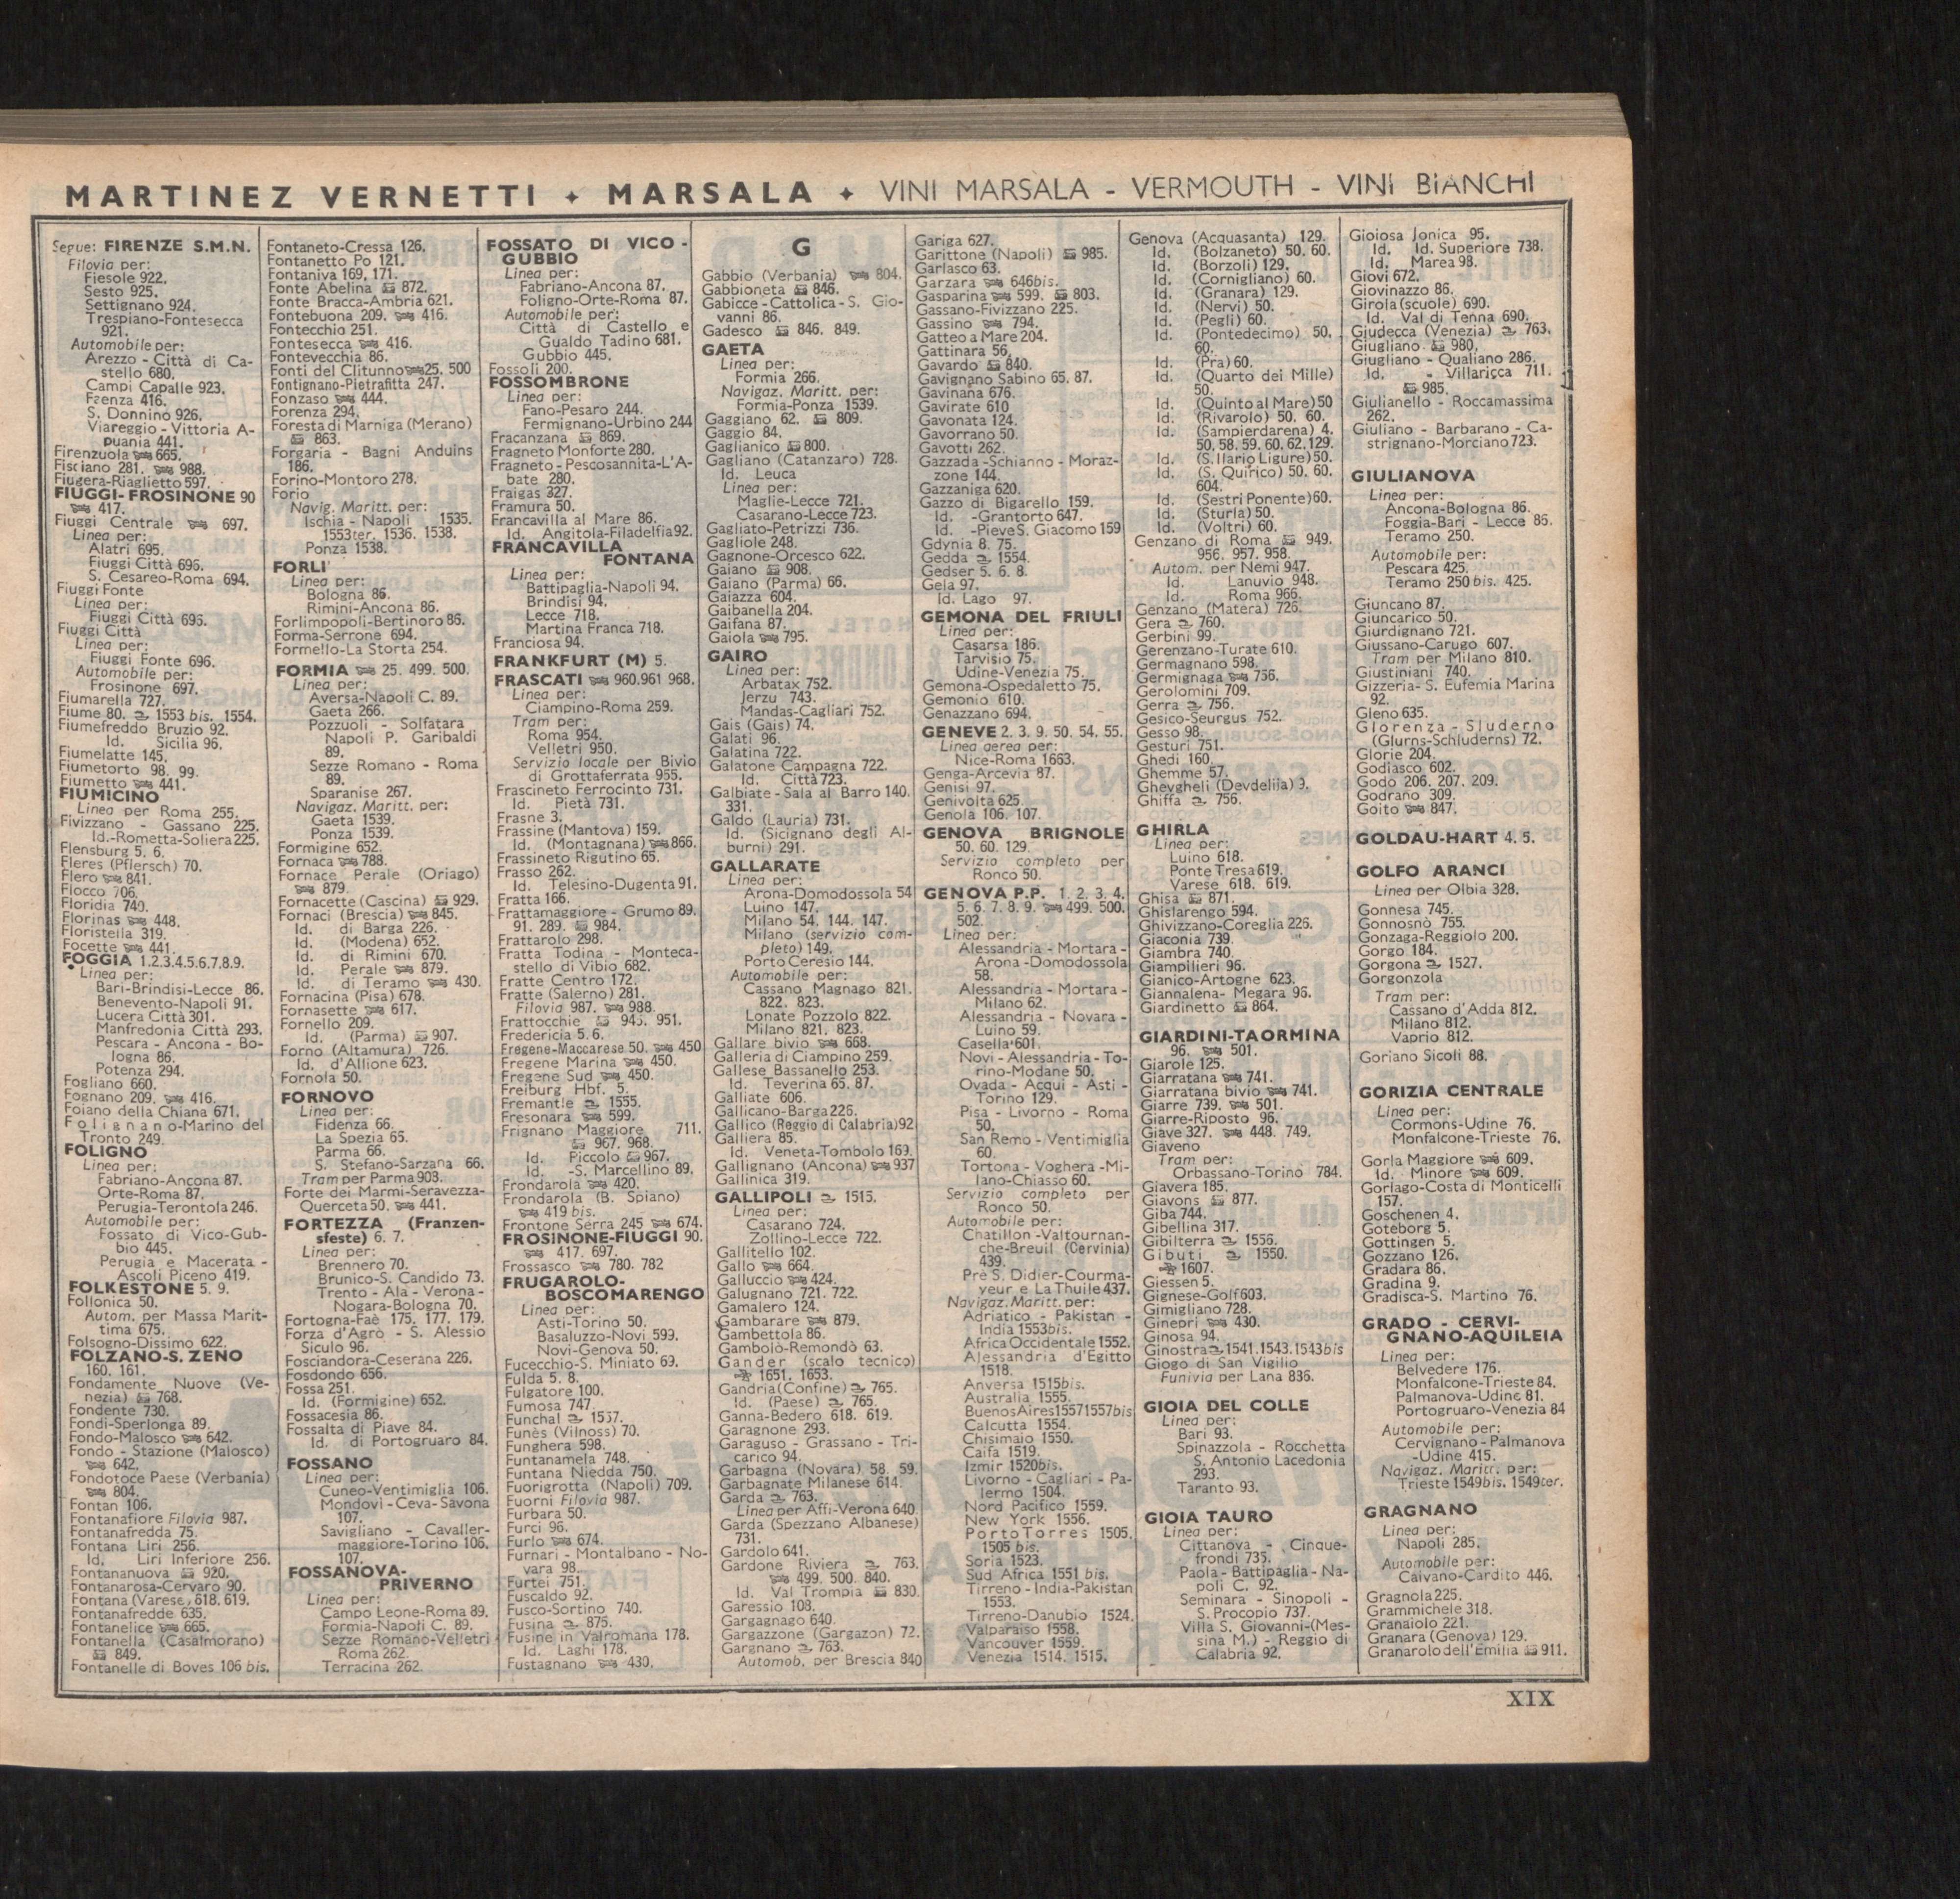 MARTINEZ VERNETTI ✦ MARSALA ✦ VINI MARSALA - VERMOUTH - VINI BIANCHI
Segue: FIRENZE S.M.N.
Filovia per:
Fiesole 922.
Sesto 925.
Settignano 924.
Trespiano-Fontesecca
921.
Automobile per:
Arezzo - Città di Ca-
stello 680.
Campi Capalle 923.
Faenza 416.
S. Donnino 926.
Viareggio - Vittoria A-
puania 441.
Firenzuola 665.
Fisciano 281. 988.
Fiugera-Riaglietto 597.
FIUGGI-FROSINONE 90
417.
Fiuggi Centrale 697.
Linea per:
Alatri 695.
Fiuggi Città 696.
S. Cesareo-Roma 694.
Fiuggi Fonte
Linea per:
Fiuggi Città 696.
Fiuggi Città
Linea per:
Fiuggi Fonte 696.
Automobile per:
Frosinone 697.
Fiumarella 727.
Fiume 80. 1553 bis. 1554.
Fiumefreddo Bruzio 92.
Id. Sicilia 96.
Fiumelatte 145.
Fiumetorto 98. 99.
Fiumetto 441.
FIUMICINO
Linea per Roma 255.
Fivizzano - Gassano 225.
Id.-Rometta-Soliera 225.
Flensburg 5. 6.
Fleres (Pflersch) 70.
Flero 841.
Flocco 706.
Floridia 740.
Florinas 448.
Floristella 319.
Focette 441.
FOGGIA 1.2.3.4.5.6.7.8.9.
Linea per:
Bari-Brindisi-Lecce 86.
Benevento-Napoli 91.
Lucera Città 301.
Manfredonia Città 293.
Pescara - Ancona - Bo-
logna 86.
Potenza 294.
Fogliano 660.
Fognano 209. 416.
Foiano della Chiana 671.
Folignano-Marino del
Tronto 249.
FOLIGNO
Linea per:
Fabriano-Ancona 87.
Orte-Roma 87.
Perugia-Terontola 246.
Automobile per:
Fossato di Vico-Gub-
bio 445.
Perugia e Macerata -
Ascoli Piceno 419.
FOLKESTONE 5. 9.
Follonica 50.
Autom. per Massa Marit-
tima 675.
Folsogno-Dissimo 622.
FOLZANO-S. ZENO
160. 161.
Fondamente Nuove (Ve-
nezia) 768.
Fondente 730.
Fondi-Sperlonga 89.
Fondo-Malosco 642.
Fondo - Stazione (Malosco)
642.
Fondotoce Paese (Verbania)
804.
Fontan 106.
Fontanafiore Filovia 987.
Fontanafredda 75.
Fontana Liri 256.
Id. Liri Inferiore 256.
Fontananuova 920.
Fontanarosa-Cervaro 90.
Fontana (Varese) 618. 619.
Fontanafredde 635.
Fontanelice 665.
Fontanella (Casalmorano)
849.
Fontanelle di Boves 106 bis.
Fontaneto-Cressa 126.
Fontanetto Po 121.
Fontaniva 169. 171.
Fonte Abelina 872.
Fonte Bracca-Ambria 621.
Fontebuona 209. 416.
Fontecchio 251.
Fontesecca 416.
Fontevecchia 86.
Fonti del Clitunno 25. 500
Fontignano-Pietrafitta 247.
Fonzaso 444.
Forenza 294.
Foresta di Marniga (Merano)
863.
Forgaria - Bagni Anduins
186.
Forino-Montoro 278.
Forio
Navig. Maritt. per:
Ischia - Napoli 1535.
1553ter. 1536. 1538.
Ponza 1538.
FORLI'
Linea per:
Bologna 86.
Rimini-Ancona 86.
Forlimpopoli-Bertinoro 86.
Forma-Serrone 694.
Formello-La Storta 254.
FORMIA 25. 499. 500.
Linea per:
Aversa-Napoli C. 89.
Gaeta 266.
Pozzuoli - Solfatara
Napoli P. Garibaldi
89.
Sezze Romano - Roma
89.
Sparanise 267.
Navigaz. Maritt. per:
Gaeta 1539.
Ponza 1539.
Formigine 652.
Fornaca 788.
Fornace Perale (Oriago)
879.
Fornacette (Cascina) 929.
Fornaci (Brescia) 845.
Id. di Barga 226.
Id. (Modena) 652.
Id. di Rimini 670.
Id. Perale 879.
Id. di Teramo 430.
Fornacina (Pisa) 678.
Fornasette 617.
Fornello 209.
Id. (Parma) 907.
Forno (Altamura) 726.
Id. d'Allione 623.
Fornola 50.
FORNOVO
Linea per:
Fidenza 66.
La Spezia 65.
Parma 66.
S. Stefano-Sarzana 66.
Tram per Parma 903.
Forte dei Marmi-Seravezza-
Querceta 50. 441.
FORTEZZA (Franzen-
sfeste) 6. 7.
Linea per:
Brennero 70.
Brunico-S. Candido 73.
Trento - Ala - Verona -
Nogara-Bologna 70.
Fortogna-Faè 175. 177. 179.
Forza d'Agrò - S. Alessio
Siculo 96.
Fosciandora-Ceserana 226.
Fosdondo 656.
Fossa 251.
Id. (Formigine) 652.
Fossacesia 86.
Fossalta di Piave 84.
Id. di Portogruaro 84.
FOSSANO
Linea per:
Cuneo-Ventimiglia 106.
Mondovì-Ceva-Savona
107.
Savigliano - Cavaller-
maggiore-Torino 106.
107.
FOSSANOVA-
PRIVERNO
Linea per:
Campo Leone-Roma 89.
Formia-Napoli C. 89.
Sezze Romano-Velletri
Roma 262.
Terracina 262.
FOSSATO DI VICO -
GUBBIO
Linea per:
Fabriano-Ancona 87.
Foligno-Orte-Roma 87.
Automobile per:
Città di Castello e
Gualdo Tadino 681.
Gubbio 445.
Fossoli 200.
FOSSOMBRONE
Linea per:
Fano-Pesaro 244.
Fermignano-Urbino 244
Fracanzana 869.
Fragneto Monforte 280.
Fragneto-Pescosannita-L'A-
bate 280.
Fraigas 327.
Framura 50.
Francavilla al Mare 86.
Id. Angitola-Filadelfia 92.
FRANCAVILLA
FONTANA
Linea per:
Battipaglia-Napoli 94.
Brindisi 94.
Lecce 718.
Martina Franca 718.
Franciosa 94.
FRANKFURT (M) 5.
FRASCATI 960.961 968.
Linea per:
Ciampino-Roma 259.
Tram per:
Roma 954.
Velletri 950.
Servizio locale per Bivio
di Grottaferrata 965.
Frascineto Ferrocinto 731.
Id. Pietà 731.
Frasne 3.
Frassine (Mantova) 159.
Id. (Montagnana) 866.
Frassineto Rigutino 65.
Frasso 262.
Id. Telesino-Dugenta 91.
Fratta 166.
Frattamaggiore - Grumo 89.
91. 289. 984.
Frattarolo 298.
Fratta Todina - Monteca-
stello di Vibio 682.
Fratte Centro 172.
Fratte (Salerno) 281.
Filovia 987. 988.
Frattocchie 945. 951.
Fredericia 5. 6.
Fregene-Maccarese 50. 450
Fregene Marina 450.
Fregene Sud 450.
Freiburg Hbf. 5.
Fremantle 1555.
Fresonara 599.
Frignano Maggiore 711.
967. 968.
Id. Piccolo 967.
Id. -S. Marcellino 89.
Frondarola 420.
Frondarola (B. Spiano)
419 bis.
Frontone Serra 245 674.
FROSINONE-FIUGGI 90.
417. 697.
Frossasco 780. 782
FRUGAROLO-
BOSCOMARENGO
Linea per:
Asti-Torino 50.
Basaluzzo-Novi 599.
Novi-Genova 50.
Fucecchio-S. Miniato 69.
Fulda 5. 8.
Fulgatore 100.
Fumosa 747.
Funchal 1557.
Funès (Vilnoss) 70.
Funghera 598.
Funtanamela 748.
Funtana Niedda 750.
Fuorigrotta (Napoli) 709.
Fuorni Filovia 987.
Furbara 50.
Furci 96.
Furlo 674.
Furnari - Montalbano - No-
vara 98.
Furtei 751.
Fuscaldo 92.
Fusco-Sortino 740.
Fusina 875.
Fusine in Valromana 178.
Id. Laghi 178.
Fustagnano 430.
G
Gabbio (Verbania) 804.
Gabbioneta 846.
Gabicce-Cattolica-S. Gio-
vanni 86.
Gadesco 846. 849.
GAETA
Linea per:
Formia 266.
Navigaz. Maritt. per:
Formia-Ponza 1539.
Gaggiano 62. 809.
Gaggio 84.
Gaglianico 800.
Gagliano (Catanzaro) 728.
Id. Leuca
Linea per:
Maglie-Lecce 721.
Casarano-Lecce 723.
Gagliato-Petrizzi 736.
Gagliole 248.
Gagnone-Orcesco 622.
Gaiano 908.
Gaiano (Parma) 66.
Gaiazza 604.
Gaibanella 204.
Gaifana 87.
Gaiola 795.
GAIRO
Linea per:
Arbatax 752.
Jerzu 743.
Mandas-Cagliari 752.
Gais (Gais) 74.
Galati 96.
Galatina 722.
Galatone Campagna 722.
Id. Città 723.
Galbiate-Sala al Barro 140.
331.
Galdo (Lauria) 731.
Id. (Sicignano degli Al-
burni) 291.
GALLARATE
Linea per:
Arona-Domodossola 54
Luino 147.
Milano 54. 144. 147.
Milano (servizio com-
pleto) 149.
Porto Ceresio 144.
Automobile per:
Cassano Magnago 821.
822. 823.
Lonate Pozzolo 822.
Milano 821. 823.
Gallare bivio 668.
Galleria di Ciampino 259.
Gallese Bassanello 253.
Id. Teverina 65. 87.
Galliate 606.
Gallicano-Barga 226.
Gallico (Reggio di Calabria) 92
Galliera 85.
Id. Veneta-Tombolo 169.
Gallignano (Ancona) 937
Gallinica 319.
GALLIPOLI 1515.
Linea per:
Casarano 724.
Zollino-Lecce 722.
Gallitello 102.
Gallo 664.
Galluccio 424.
Galugnano 721. 722.
Gamalero 124.
Gambarare 879.
Gambettola 86.
Gambolò-Remondò 63.
Gander (scalo tecnico)
1651. 1653.
Gandria (Confine) 765.
Id. (Paese) 765.
Ganna-Bedero 618. 619.
Garagnone 293.
Garaguso - Grassano - Tri-
carico 94.
Garbagna (Novara) 58. 59.
Garbagnate Milanese 614.
Garda 763.
Linea per Affi-Verona 640
Garda (Spezzano Albanese)
731.
Gardolo 641.
Gardone Riviera 763.
499. 500. 840.
Id. Val Trompia 830.
Garessio 108.
Gargagnago 640.
Gargazzone (Gargazon) 72.
Gargnano 763.
Automob. per Brescia 840
Gariga 627.
Garittone (Napoli) 985.
Garlasco 63.
Garzara 646bis.
Gasparina 599. 803.
Gassano-Fivizzano 225.
Gassino 794.
Gatteo a Mare 204.
Gattinara 56.
Gavardo 840.
Gavignano Sabino 65. 87.
Gavinana 676.
Gavirate 610
Gavonata 124.
Gavorrano 50.
Gavotti 262.
Gazzada-Schianno - Moraz-
zone 144.
Gazzaniga 620.
Gazzo di Bigarello 159.
Id. -Grantorto 647.
Id. -Pieve S. Giacomo 159
Gdynia 8. 75.
Gedda 1554.
Gedser 5. 6. 8.
Gela 97.
Id. Lago 97.
GEMONA DEL FRIULI
Linea per:
Casarsa 186.
Tarvisio 75.
Udine-Venezia 75.
Gemona-Ospedaletto 75.
Gemonio 610.
Genazzano 694.
GENEVE 2. 3. 9. 50. 54. 55.
Linea aerea per:
Nice-Roma 1663.
Genga-Arcevia 87.
Genisi 97.
Genivolta 625.
Genola 106. 107.
GENOVA BRIGNOLE
50. 60. 129.
Servizio completo per
Ronco 50.
GENOVA P.P. 1. 2. 3. 4.
5. 6. 7. 8. 9. 499. 500.
502.
Linea per:
Alessandria - Mortara -
Arona-Domodossola
58.
Alessandria - Mortara -
Milano 62.
Alessandria - Novara -
Luino 59.
Casella 601.
Novi - Alessandria - To-
rino-Modane 50.
Ovada - Acqui - Asti -
Torino 129.
Pisa - Livorno - Roma
50.
San Remo - Ventimiglia
60.
Tortona - Voghera -Mi-
lano-Chiasso 60.
Servizio completo per
Ronco 50.
Automobile per:
Chatillon -Valtournan-
che-Breuil (Cervinia)
439.
Prè S. Didier-Courma-
yeur e La Thuile 437.
Navigaz. Maritt. per:
Adriatico - Pakistan -
India 1553bis.
Africa Occidentale 1552.
Alessandria d'Egitto
1518.
Anversa 1515bis.
Australia 1555.
Buenos Aires 1557 1557bis
Calcutta 1554.
Chisimaio 1550.
Caifa 1519.
Izmir 1520bis.
Livorno - Cagliari - Pa-
lermo 1504.
Nord Pacifico 1559.
New York 1556.
Porto Torres 1505.
1505 bis.
Soria 1523.
Sud Africa 1551 bis.
Tirreno-India-Pakistan
1553.
Tirreno-Danubio 1524.
Valparaiso 1558.
Vancouver 1559.
Venezia 1514. 1515.
Genova (Acquasanta) 129.
Id. (Bolzaneto) 50. 60.
Id. (Borzoli) 129.
Id. (Cornigliano) 60.
Id. (Granara) 129.
Id. (Nervi) 50.
Id. (Pegli) 60.
Id. (Pontedecimo) 50.
60.
Id. (Pra) 60.
Id. (Quarto dei Mille)
50.
Id. (Quinto al Mare) 50
Id. (Rivarolo) 50. 60.
Id. (Sampierdarena) 4.
50. 58. 59. 60. 62. 129.
Id. (S. Ilario Ligure) 50.
Id. (S. Quirico) 50. 60.
604.
Id. (Sestri Ponente) 60.
Id. (Sturla) 50.
Id. (Voltri) 60.
Genzano di Roma 949.
956. 957. 958.
Autom. per Nemi 947.
Id. Lanuvio 948.
Id. Roma 966.
Genzano (Matera) 726.
Gera 760.
Gerbini 99.
Gerenzano-Turate 610.
Germagnano 598.
Germignaga 756.
Gerolomini 709.
Gerra 756.
Gesico-Seurgus 752.
Gesso 98.
Gesturi 751.
Ghedi 160.
Ghemme 57.
Ghevgheli (Devdelija) 9.
Ghiffa 756.
GHIRLA
Linea per:
Luino 618.
Ponte Tresa 619.
Varese 618. 619.
Ghisa 871.
Ghislarengo 594.
Ghivizzano-Coreglia 226.
Giaconia 739.
Giambra 740.
Giampilieri 96.
Gianico-Artogne 623.
Giannalena-Megara 96.
Giardinetto 864.
GIARDINI-TAORMINA
96. 501.
Giarole 125.
Giarratana 741.
Giarratana bivio 741.
Giarre 739. 501.
Giarre-Riposto 96.
Giave 327. 448. 749.
Giaveno
Tram per:
Orbassano-Torino 784.
Giavera 185.
Giavons 877.
Giba 744.
Gibellina 317.
Gibilterra 1556.
Gibuti 1550.
1607.
Giessen 5.
Gignese-Golf 603.
Gimigliano 728.
Ginepri 430.
Ginosa 94.
Ginostra 1541.1543.1543bis
Giogo di San Vigilio
Funivia per Lana 836.
GIOIA DEL COLLE
Linea per:
Bari 93.
Spinazzola - Rocchetta
S. Antonio Lacedonia
293.
Taranto 93.
GIOIA TAURO
Linea per:
Cittanova - Cinque-
frondi 735.
Paola - Battipaglia - Na-
poli C. 92.
Seminara - Sinopoli -
S. Procopio 737.
Villa S. Giovanni-(Mes-
sina M.) - Reggio di
Calabria 92.
Gioiosa Jonica 95.
Id. Id. Superiore 738.
Id. Marea 98.
Giovi 672.
Giovinazzo 86.
Girola (scuole) 690.
Id. Val di Tenna 690.
Giudecca (Venezia) 763.
Giugliano 980.
Giugliano - Qualiano 286.
Id. - Villaricca 711.
985.
Giulianello - Roccamassima
262.
Giuliano - Barbarano - Ca-
strignano-Morciano 723.
GIULIANOVA
Linea per:
Ancona-Bologna 86.
Foggia-Bari - Lecce 86.
Teramo 250.
Automobile per:
Pescara 425.
Teramo 250 bis. 425.
Giuncano 87.
Giuncarico 50.
Giurdignano 721.
Giussano-Carugo 607.
Tram per Milano 810.
Giustiniani 740.
Gizzeria- S. Eufemia Marina
92.
Gleno 635.
Glorenza - Sluderno
(Glurns-Schluderns) 72.
Glorie 204.
Godiasco 602.
Godo 206. 207. 209.
Godrano 309.
Goito 847.
GOLDAU-HART 4. 5.
GOLFO ARANCI
Linea per Olbia 328.
Gonnesa 745.
Gonnosnò 755.
Gonzaga-Reggiolo 200.
Gorgo 184.
Gorgona 1527.
Gorgonzola
Tram per:
Cassano d'Adda 812.
Milano 812.
Vaprio 812.
Goriano Sicoli 88.
GORIZIA CENTRALE
Linea per:
Cormons-Udine 76.
Monfalcone-Trieste 76.
Gorla Maggiore 609.
Id. Minore 609.
Gorlago-Costa di Monticelli
157.
Goschenen 4.
Goteborg 5.
Gottingen 5.
Gozzano 126.
Gradara 86.
Gradina 9.
Gradisca-S. Martino 76.
GRADO - CERVI-
GNANO-AQUILEIA
Linea per:
Belvedere 176.
Monfalcone-Trieste 84.
Palmanova-Udine 81.
Portogruaro-Venezia 84
Automobile per:
Cervignano-Palmanova
-Udine 415.
Navigaz. Maritt. per:
Trieste 1549bis. 1549ter.
GRAGNANO
Linea per:
Napoli 285.
Automobile per:
Caivano-Cardito 446.
Gragnola 225.
Grammichele 318.
Granaiolo 221.
Granara (Genova) 129.
Granarolo dell'Emilia 911.
XIX